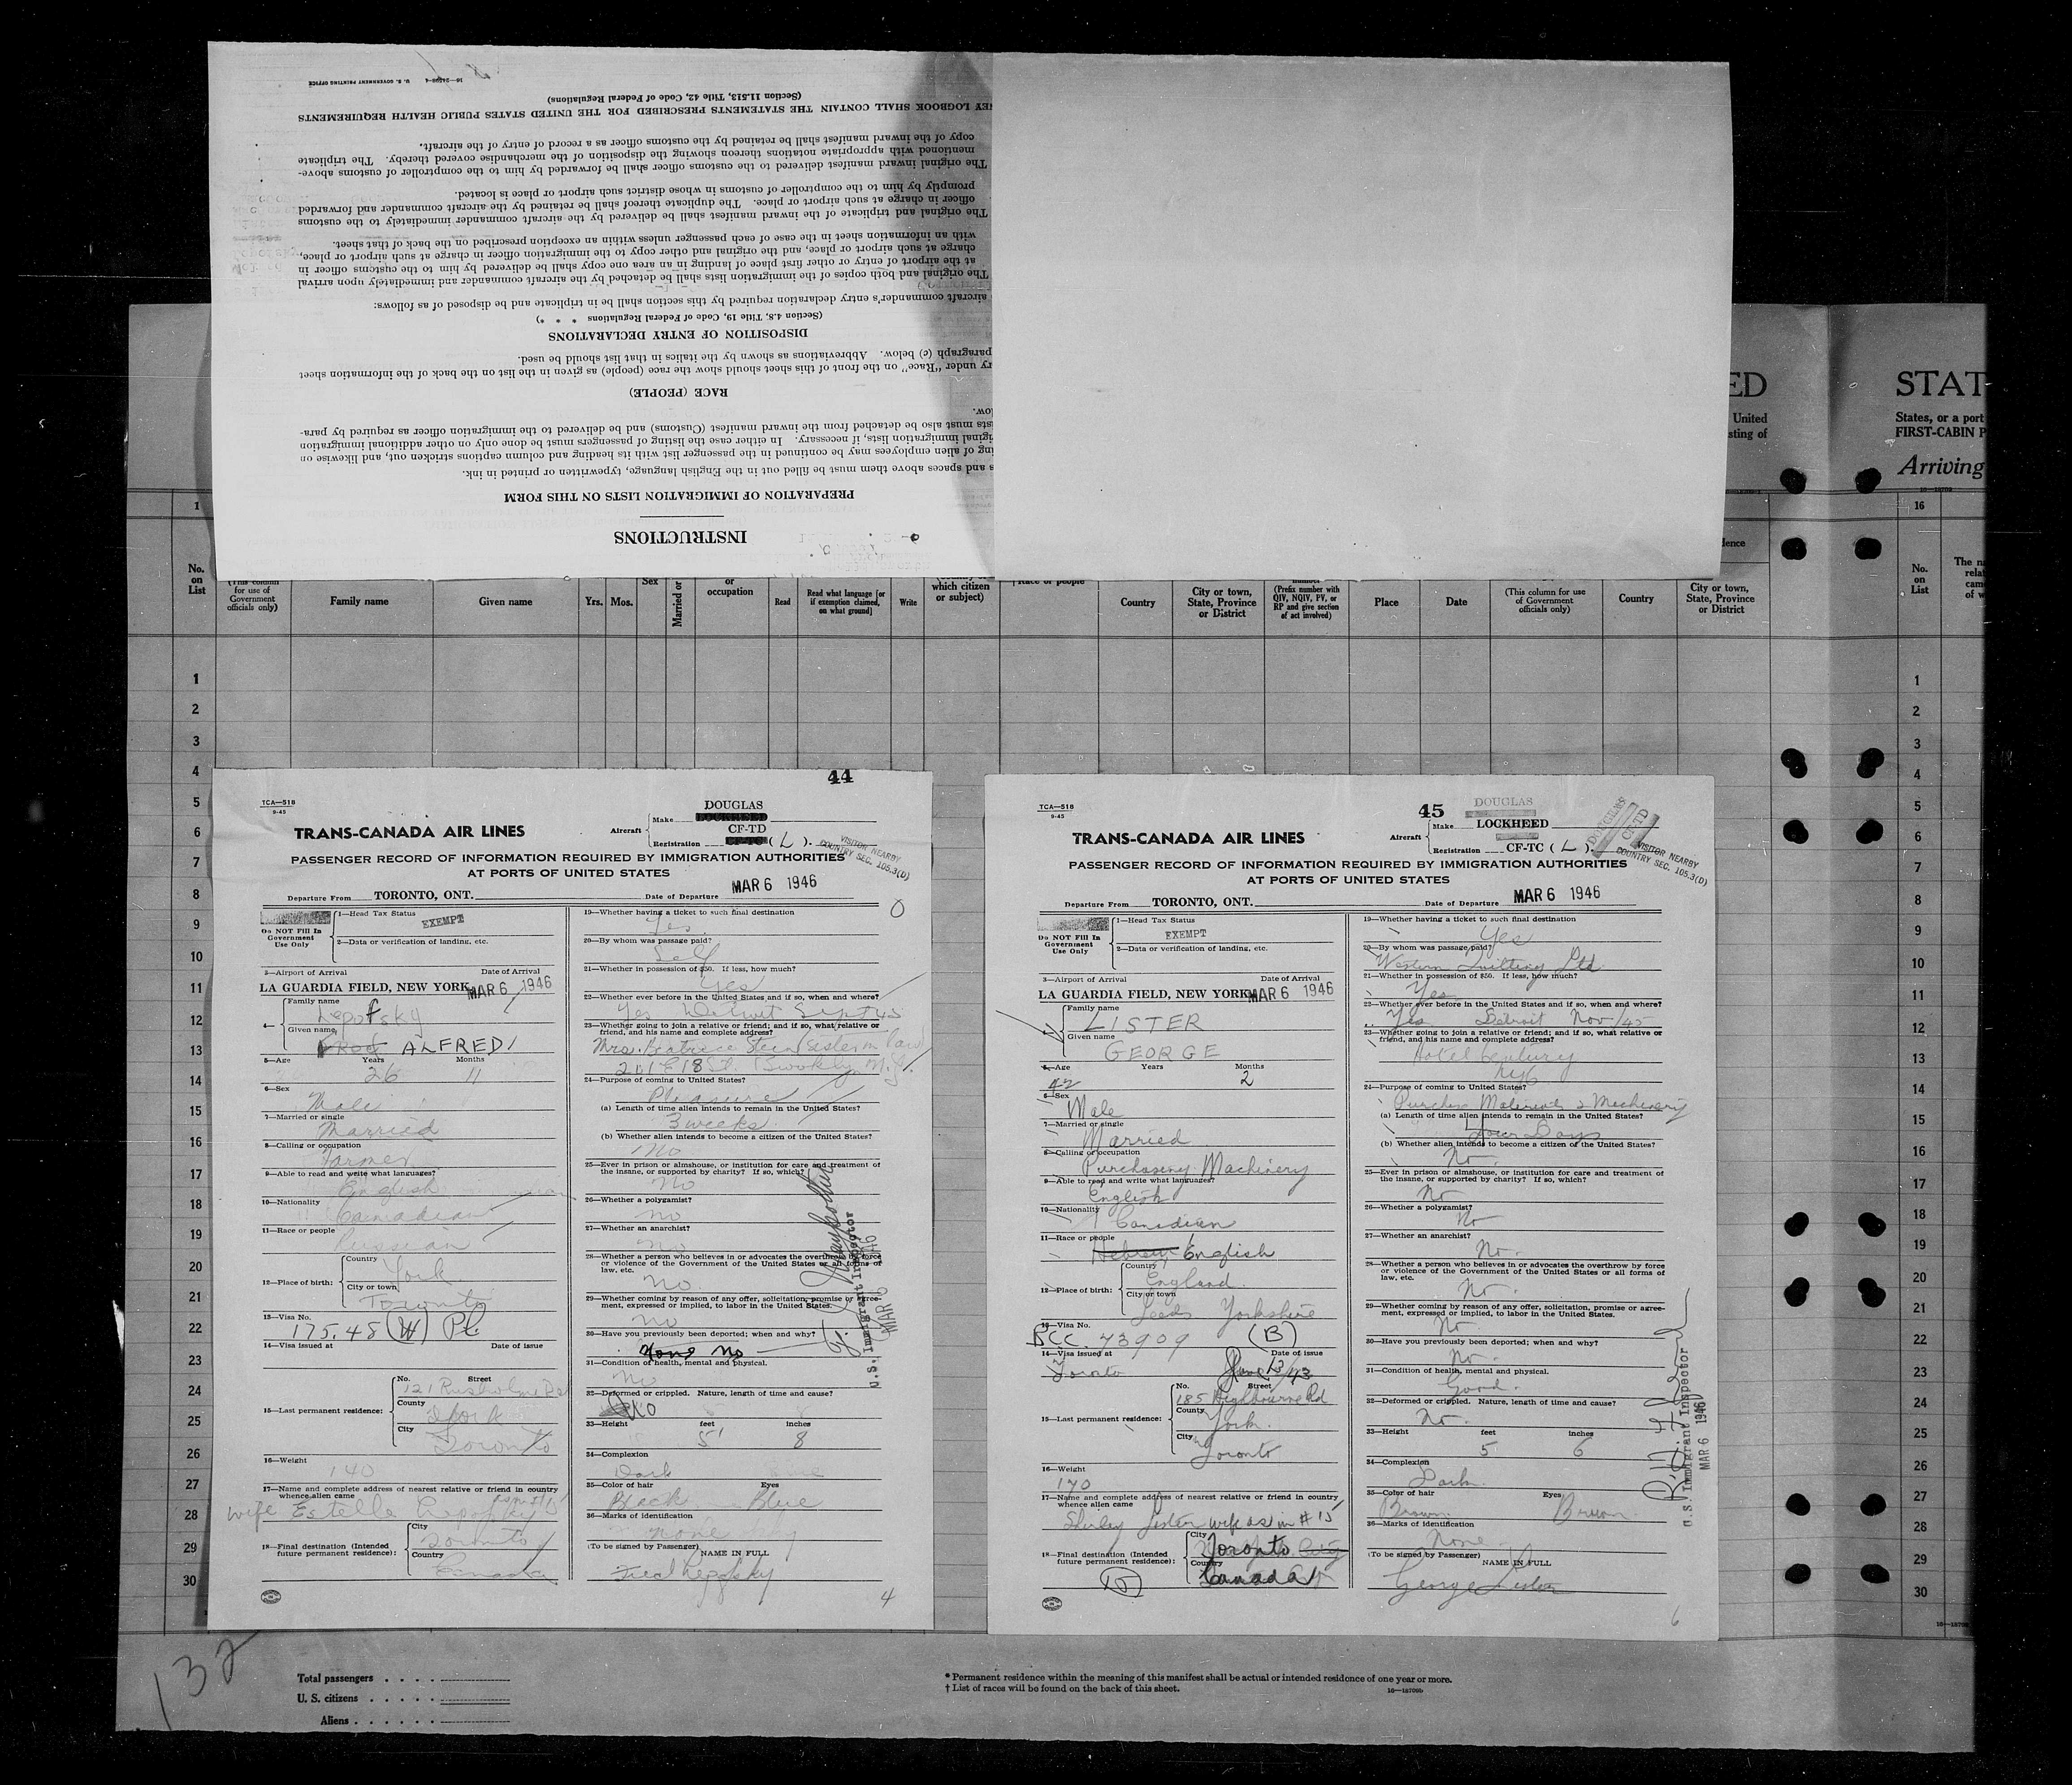 INSTRUCTIONS
PREPARATION OF IMMIGRATION LISTS ON THIS FORM
s and spaces above them must be filled out in the English language, typewritten or printed in ink.
ing of alien employees may be continued in the passenger list with its heading and column captions stricken out, and likewise on
iginal immigration lists, if necessary. In either case the listing of passengers must be done only on other additional immigration
sts must also be detached from the inward manifest (Customs) and be delivered to the immigration officer as required by para-
low.
RACE (PEOPLE)
ry under "Race" on the front of this sheet should show the race (people) as given in the list on the back of the information sheet
paragraph (c) below. Abbreviations as shown by the italics in that list should be used.
DISPOSITION OF ENTRY DECLARATIONS
(Section 4.8, Title 19, Code of Federal Regulations * * *)
aircraft commander's entry declaration required by this section shall be in triplicate and be disposed of as follows:
The original and both copies of the immigration lists shall be detached by the aircraft commander and immediately upon arrival
at the airport of entry or other first place of landing in an area one copy shall be delivered by him to the customs officer in
charge at such airport or place, and the original and other copy to the immigration officer in charge at such airport or place,
with an information sheet in the case of each passenger unless within an exception prescribed on the back of that sheet.
The original and triplicate of the inward manifest shall be delivered by the aircraft commander immediately to the customs
officer in charge at such airport or place. The duplicate thereof shall be retained by the aircraft commander and forwarded
promptly by him to the comptroller of customs in whose district such airport or place is located.
The original inward manifest delivered to the customs officer shall be forwarded by him to the comptroller of customs above-
mentioned with appropriate notations thereon showing the disposition of the merchandise covered thereby. The triplicate
copy of the inward manifest shall be retained by the customs officer as a record of entry of the aircraft.
EY LOGBOOK SHALL CONTAIN THE STATEMENTS PRESCRIBED FOR THE UNITED STATES PUBLIC HEALTH REQUIREMENTS
(Section 11.513, Title 42, Code of Federal Regulations)
U. S. GOVERNMENT PRINTING OFFICE
ED
United
sting of
STAT
States, or a port
FIRST-CABIN P
Arriving
1
16
No. on List
(This column for use of Government officials only)
Family name
Given name
Yrs.
Mos.
Sex
Married or
or occupation
Read
Read what language [or if exemption claimed, on what ground]
Write
which citizen or subject)
Race or people
Country
City or town, State, Province or District
number
(Prefix number with QIV, NQIV, PV, or RP and give section of act involved)
Place
Date
(This column for use of Government officials only)
Country
dence
City or town, State, Province or District
No. on List
The na
relat
cam
of w
1
2
3
4
5
6
7
8
9
10
11
12
13
14
15
16
17
18
19
20
21
22
23
24
25
26
27
28
29
30
44
TCA—518
9-45
TRANS-CANADA AIR LINES
Aircraft
Make DOUGLAS
LOCKHEED
Registration CF-TD
CF-TC (L).
VISITOR NEARBY
COUNTRY SEC. 105.3(D)
PASSENGER RECORD OF INFORMATION REQUIRED BY IMMIGRATION AUTHORITIES
AT PORTS OF UNITED STATES
Departure From TORONTO, ONT. Date of Departure MAR 6 1946
Do NOT Fill In Government Use Only
1—Head Tax Status EXEMPT
2—Data or verification of landing, etc.
3—Airport of Arrival Date of Arrival
LA GUARDIA FIELD, NEW YORK MAR 6 1946
4— Family name Lepofsky
Given name ALFRED
5—Age Years 26 Months 11
6—Sex Male
7—Married or single Married
8—Calling or occupation Farmer
9—Able to read and write what languages? English
10—Nationality Canadian
11—Race or people Russian
12—Place of birth: Country York
City or town Toronto
13—Visa No. 175.48 (W) PL
14—Visa issued at Date of issue
15—Last permanent residence: No. Street 121 Rusholme Rd
County York
City Toronto
16—Weight 140
17—Name and complete address of nearest relative or friend in country whence alien came
wife Estelle Lepofsky
18—Final destination (Intended future permanent residence): City Toronto
Country Canada
19—Whether having a ticket to such final destination
Yes
20—By whom was passage paid?
Self
21—Whether in possession of $50. If less, how much?
Yes
22—Whether ever before in the United States and if so, when and where?
Yes Detroit Sept 45
23—Whether going to join a relative or friend; and if so, what relative or friend, and his name and complete address?
Mrs. Beatrice Stein (Sister in law)
201 E 18 St. Brooklyn N.Y.
24—Purpose of coming to United States?
Pleasure
(a) Length of time alien intends to remain in the United States?
3 weeks
(b) Whether alien intends to become a citizen of the United States?
No
25—Ever in prison or almshouse, or institution for care and treatment of the insane, or supported by charity? If so, which?
No
26—Whether a polygamist?
No
27—Whether an anarchist?
No
28—Whether a person who believes in or advocates the overthrow by force or violence of the Government of the United States or all forms of law, etc.
No
29—Whether coming by reason of any offer, solicitation, promise or agreement, expressed or implied, to labor in the United States.
No
30—Have you previously been deported; when and why?
None No
31—Condition of health, mental and physical.
No
32—Deformed or crippled. Nature, length of time and cause?
No
33—Height feet inches
5' 8
34—Complexion
Dark
35—Color of hair Eyes
Black Blue
36—Marks of identification
None
(To be signed by Passenger) NAME IN FULL
Fred Lepofsky
U.S. Immigrant Inspector
4
45
TCA—518
9-45
TRANS-CANADA AIR LINES
Aircraft
DOUGLAS
Make LOCKHEED
Registration CF-TC (L).
DOUGLAS
CF-TD
VISITOR NEARBY
COUNTRY SEC. 105.3(D)
PASSENGER RECORD OF INFORMATION REQUIRED BY IMMIGRATION AUTHORITIES
AT PORTS OF UNITED STATES
Departure From TORONTO, ONT. Date of Departure MAR 6 1946
Do NOT Fill In Government Use Only
1—Head Tax Status EXEMPT
2—Data or verification of landing, etc.
3—Airport of Arrival Date of Arrival
LA GUARDIA FIELD, NEW YORK MAR 6 1946
Family name LISTER
Given name GEORGE
5—Age Years Months
42 2
6—Sex Male
7—Married or single Married
8—Calling or occupation Purchasing Machinery
9—Able to read and write what languages? English
10—Nationality Canadian
11—Race or people Hebrew English
12—Place of birth: Country England
City or town Leeds Yorkshire
13—Visa No. BCC. 73909 (B)
14—Visa issued at Date of issue
Toronto 13/43
15—Last permanent residence: No. Street 185 Highbourne Rd
County York
City Toronto
16—Weight 170
17—Name and complete address of nearest relative or friend in country whence alien came
Shirley Lister wife as in # 15
18—Final destination (Intended future permanent residence): City Toronto
Country Canada
19—Whether having a ticket to such final destination
Yes
20—By whom was passage paid?
Western Quilting Ltd
21—Whether in possession of $50. If less, how much?
Yes
22—Whether ever before in the United States and if so, when and where?
Yes Detroit Nov/45
23—Whether going to join a relative or friend; and if so, what relative or friend, and his name and complete address?
Hotel Century
NYC
24—Purpose of coming to United States?
Purchase Materials & Machinery
(a) Length of time alien intends to remain in the United States?
Four Days
(b) Whether alien intends to become a citizen of the United States?
No.
25—Ever in prison or almshouse, or institution for care and treatment of the insane, or supported by charity? If so, which?
No
26—Whether a polygamist?
No
27—Whether an anarchist?
No.
28—Whether a person who believes in or advocates the overthrow by force or violence of the Government of the United States or all forms of law, etc.
No.
29—Whether coming by reason of any offer, solicitation, promise or agreement, expressed or implied, to labor in the United States.
No.
30—Have you previously been deported; when and why?
No.
31—Condition of health, mental and physical.
Good.
32—Deformed or crippled. Nature, length of time and cause?
No.
33—Height feet inches
5 6
34—Complexion
Dark
35—Color of hair Eyes
Brown Brown
36—Marks of identification
None
(To be signed by Passenger) NAME IN FULL
George Lister
U.S. Immigrant Inspector
MAR 6 1946
6
132
Total passengers
U. S. citizens
Aliens
* Permanent residence within the meaning of this manifest shall be actual or intended residence of one year or more.
† List of races will be found on the back of this sheet.